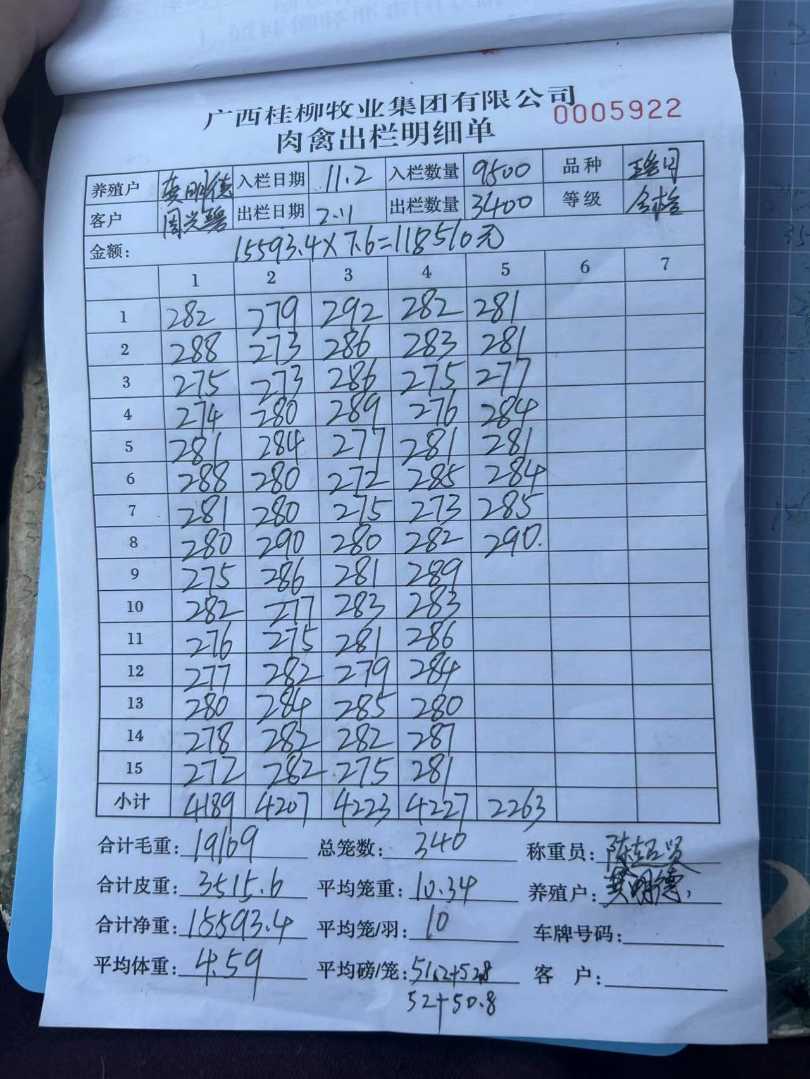 广西桂柳牧业集团有限公司
肉禽出栏明细单 0005922
养殖户 樊明德 入栏日期 11.2 入栏数量 9500 品种
客户 周兴碧 出栏日期 2.1 出栏数量 3400 等级 合格
金额: 15593.4×7.6=118510元
1 2 3 4 5 6 7
1 282 279 292 282 281
2 288 273 286 283 281
3 275 273 286 275 277
4 274 280 289 276 284
5 281 284 277 281 281
6 288 280 272 285 284
7 281 280 275 273 285
8 280 290 280 282 290.
9 275 286 281 289
10 282 277 283 283
11 276 275 281 286
12 277 282 279 284
13 280 284 285 280
14 278 282 282 287
15 272 282 275 281
小计 4189 4207 4223 4227 2263
合计毛重: 19109 总笼数: 340 称重员: 陈绍贤
合计皮重: 3515.6 平均笼重: 10.34 养殖户: 樊明德
合计净重: 15593.4 平均笼/羽: 10 车牌号码:
平均体重: 4.59 平均磅/笼: 51.2+52.8 客 户:
52+50.8